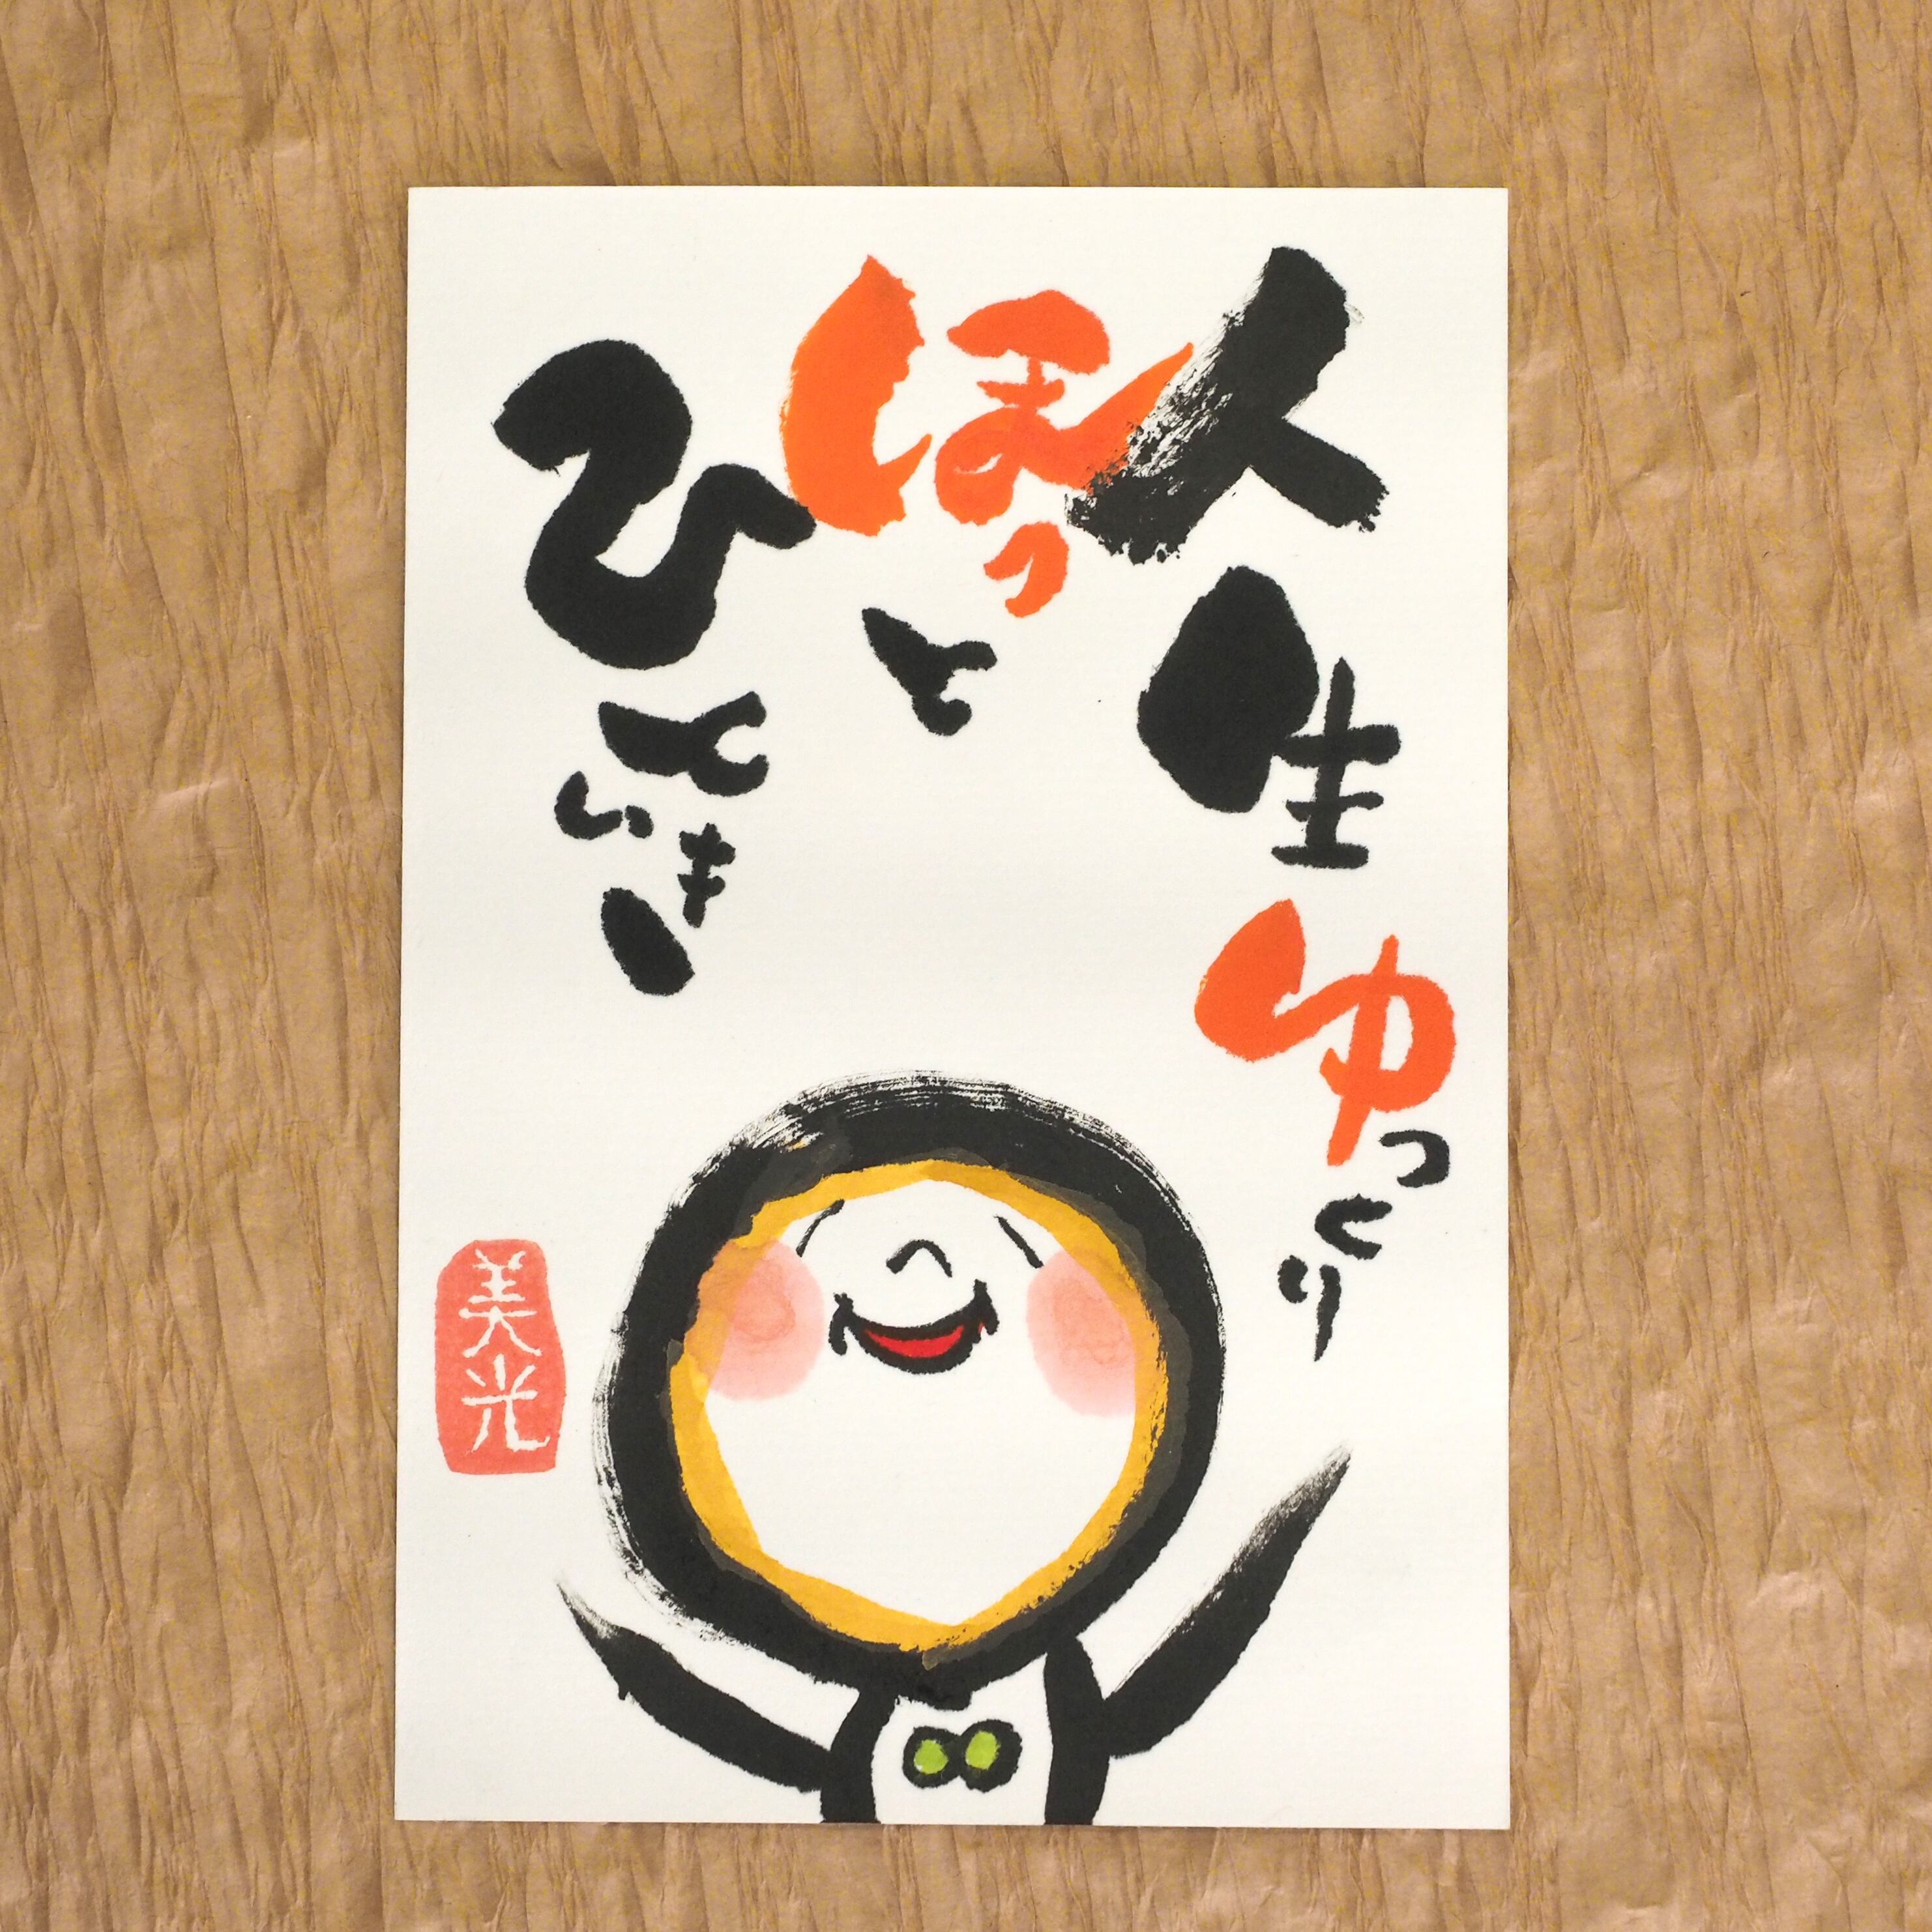 人生ゆっくり
ほっと
ひといき
美光